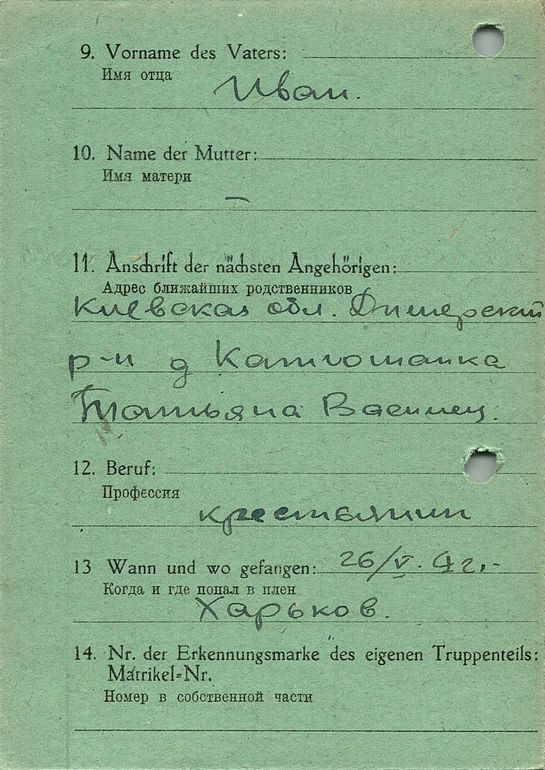 9. Vorname des Vaters:
Имя отца
Иван.
10. Name der Mutter:
Имя матери
–
11. Anschrift der nächsten Angehörigen:
Адрес ближайших родственников
Киевская обл. Дымерский
р-н д Катюжанка
Татьяна
12. Beruf:
Профессия
крестьянин
13 Wann und wo gefangen: 26/V. 42.-
Когда и где попал в плен
Харьков.
14. Nr. der Erkennungsmarke des eigenen Truppenteils:
Matrikel=Nr.
Номер в собственной части